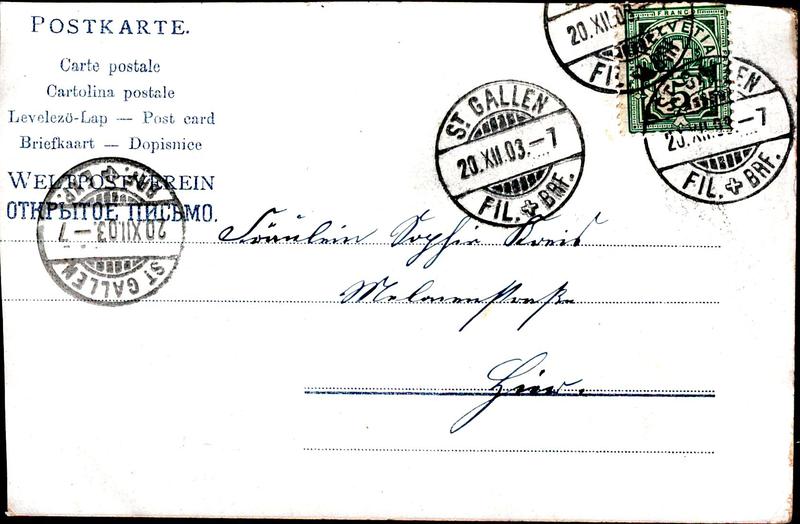 POSTKARTE.
Carte postale
Cartolina postale
Levelező-Lap — Post card
Briefkaart — Dopisnice
WELTPOSTVEREIN
ОТКРЫТОЕ ПИСЬМО.
FRANCO
HELVETIA
5
20.XII.03.–7
FIL.
ST GALLEN
20.XII.03.–7
FIL. + BRF.
GALLEN
20.XII.03.–7
FIL. + BRF.
ST GALLEN
20.XII.03.–7
Fräulein Sophie Kreis
Hier.